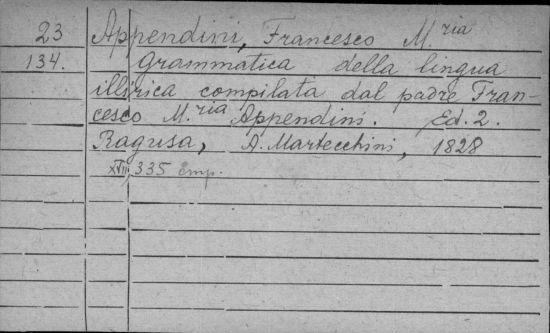 23 Appendini, Francesco M.ria
134. Grammatica della lingua
illirica compilata dal padre Fran-
cesco M.ria Appendini. Ed. 2.
Ragusa, A. Martecchini, 1828
XVII, 335 стр.